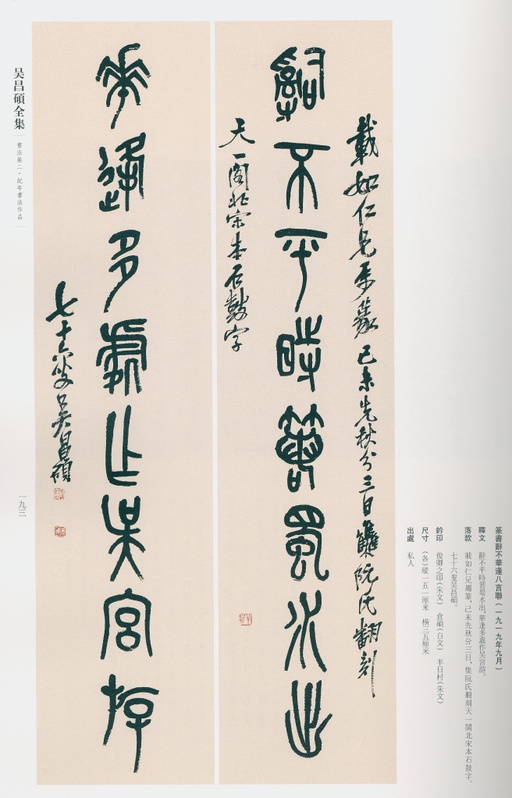 篆書辭不華逢八言聯（一九一九年九月）
釋文　辭不平時萬蜀水出，華逢多處作吴宮游。
落款　載如仁兄屬篆，己未先秋分三日，集阮氏翻刻天一閣北宋本石鼓字。
七十六叟吴昌碩。
鈐印　俊卿之印（朱文）　倉碩（白文）　半日村（朱文）
尺寸　（各）縱一五一厘米　橫三五厘米
出處　私人
載如仁兄屬篆己未先秋分三日集阮氏翻刻
辭不平時萬蜀水出
天一閣北宋本石鼓字
華逢多處作吴宮游
七十六叟吴昌碩
吴昌碩全集
書法卷二·紀年書法作品
一九三